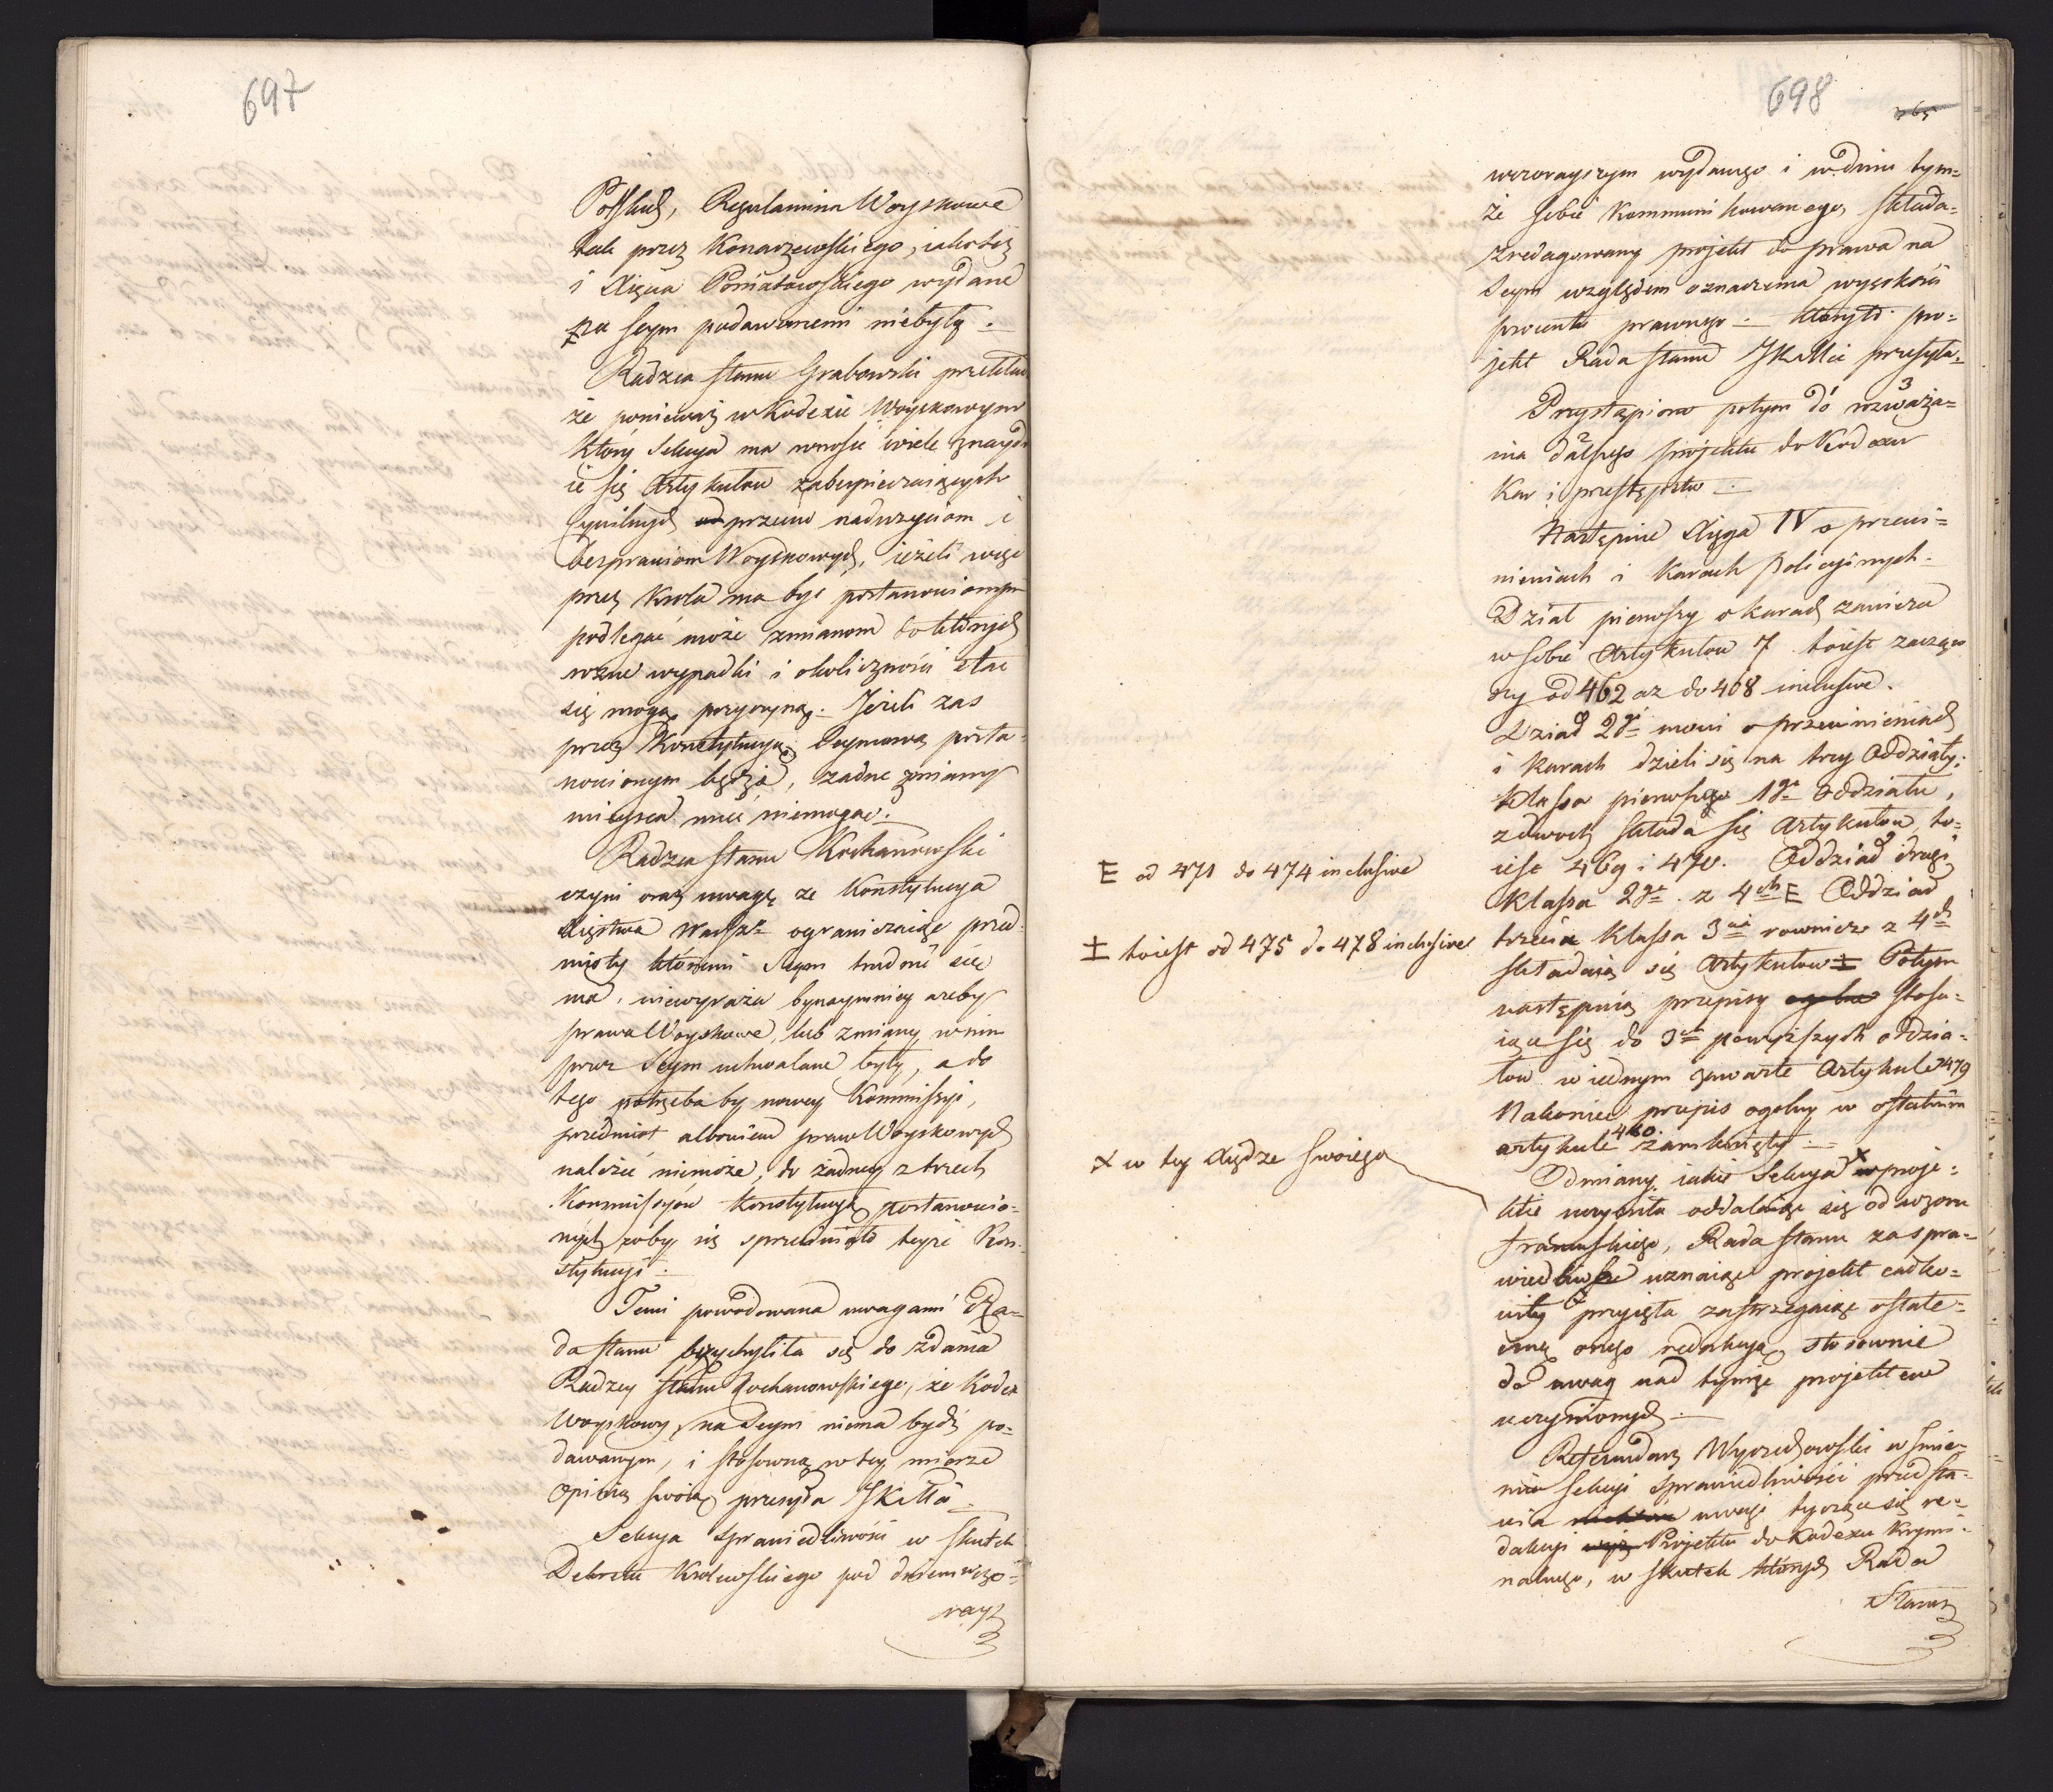 697
Polskich, Regulamina Woyskowe
tak przez Konarzewskiego, iakoteż
i Xięcia Poniatowskiego wydane
na Seym podawanemi niebyły.
Radzca Stanu Grabowski przekłada
że ponieważ w Kodexie Woyskowym
który Sekcya ma wnosić wiele znaydu
ie się Artykułow zabezpieczaiących
Cywilnych od przeciw nadużyciom i
bezprawiom Woyskowych, ieżeli więc
przez Krola ma być postanowionym
podlegać może zmianom do których
rozne wypadki i okoliczności stać
się mogą przyczyną. Jeżeli zaś
przez Konstytucyą Seymową posta-
nowionym będzie, żadne zmiany
mieysca mieć niemogąć.
Radzca Stanu Kochanowski
czyni oraz uwagę ze Konstytucya
Xięstwa Warsz: ograniczaiąc przed-
mioty któremi Seym trudnić się
ma, niewyraża bynaymniey azeby
prawa Woyskowe, lub zmiany w nim
przez Seym uchwalane były, a do
tego potrzeba by nowey Kommissyi,
przedmiot albowiem praw Woyskowych
należeć niemoże, do żadney z trzech
Kommissyów Konstytucyą postanowio-
nych coby się sprzeciwiało teyże Kon-
stytucyi.
Temi powodowana uwagami Ra-
da Stanu przychyliła się do zdania
Radzcy Stanu Kochanowskiego, że Kodex
Woyskowy na Seym niema bydź po-
dawanym, i stosowną w tey mierze
opinią swoią przesyła JKMci.
Sekcya Sprawiedliwości w skutek
Dekretu Krolewskiego pod dniem wczo-
rayz
698
365
wczorayszym wydanego i w dniu tym-
że sobie Kommunikowanego, składa
zredagowany projekt do prawa na
Seym względem oznaczenia wysokości
procentu prawnego. Któryto pro-
jekt Rada Stanu JKMci przesyła.
Przystąpiono potym do rozważa-
nia dalszego projektu do Kodexu
Kar i przestępstw.
Następnie Xięga IV o przewi-
nieniach i Karach Policyinych.
Dział pierwszy o karach zawiera
w sobie Artykułow 7 toiest zacząw
szy od 462 az do 468 inclusive.
Dział 2gi mowi o przewinieniach
i Karach dzieli się na trzy Oddziały:
Klassa pierwszego 1go Oddziału,
z dwoch składa się Artykułow, to-
iest 469 i 470. Oddział drugi
Klassa 2ga z 4ch E Oddział
trzeci Klassa 3cia rownież z 4ch
składaią się Artykułow ± Potym
następuią przepisy ogolne stosu-
iące się do 3ch powyższych oddzia-
łow w iednym zawarte Artykule 479
Nakoniec przepis ogolny w ostatnim
artykule 480. zamknięty.
Odmiany iakie Sekcya x w proje-
kcie uczyniła oddalaiąc się od wzoru
francuskiego, Rada Stanu za spra-
wiedliwe uznaiąc projekt całko-
wity przyięła zastrzegaiąc ostate-
czną onego redakcyą stosownie
do uwag nad tymże projektem
uczynionych.
Referendarz Wyczechowski w Imie-
niu Sekcyi Sprawiedliwości przedsta-
wia niektóre uwagi tyczące się re-
dakcyi wyż Projektu do Kodexu Krymi-
nalnego, w skutek których Rada
Stanu
E od 471 do 474 inclusive
± toiest od 475 do 478 inclusive
x w tey Xiędze swoiego